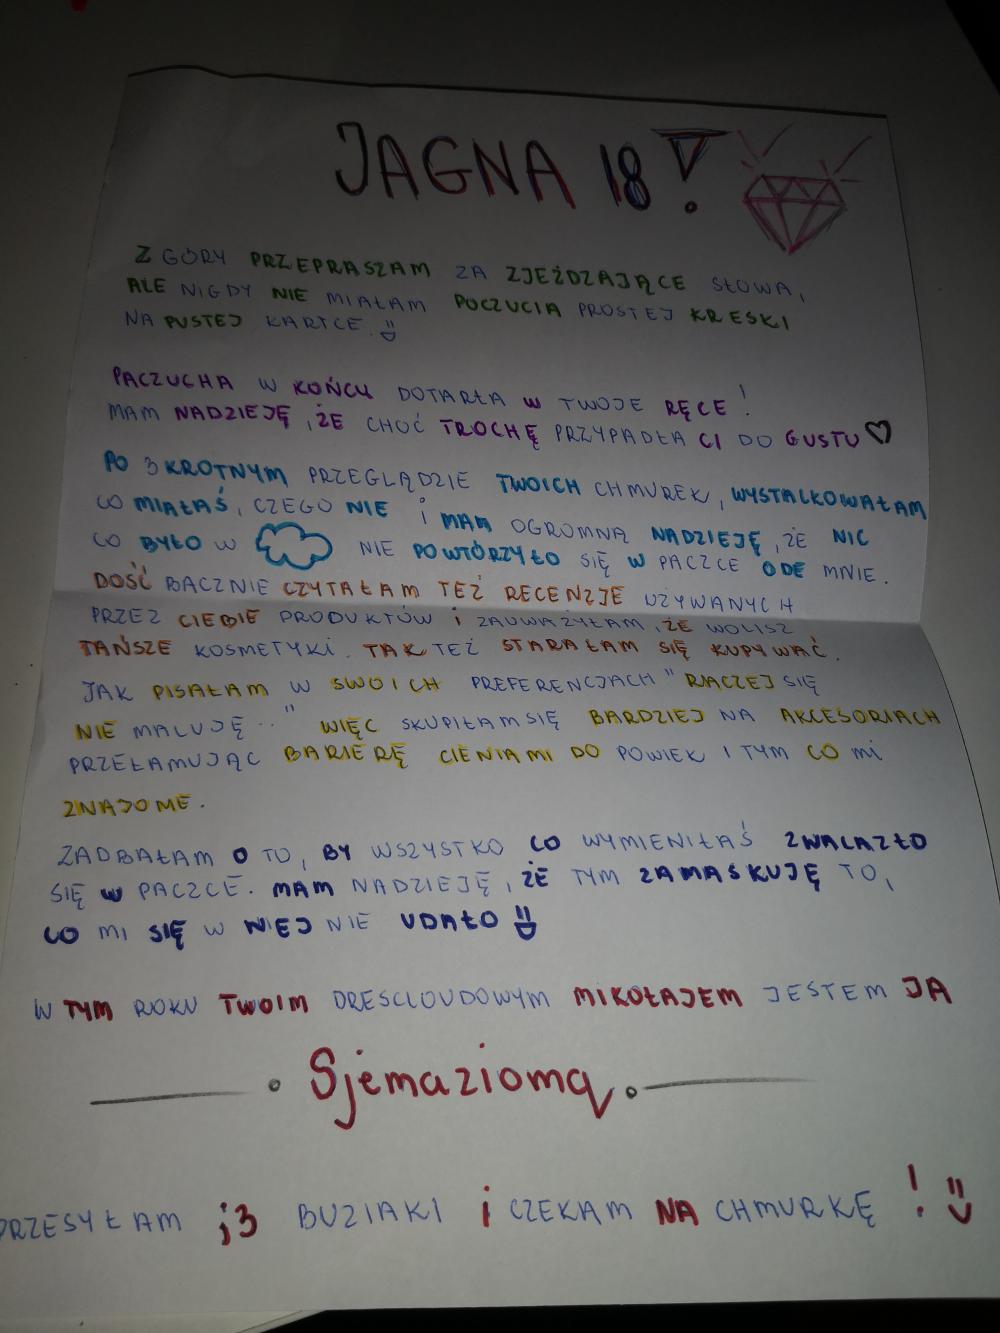 JAGNA 18!
Z GÓRY PRZEPRASZAM ZA ZJEŻDZAJĄCE SŁOWA,
ALE NIGDY NIE MIAŁAM POCZUCIA PROSTEJ KRESKI
NA PUSTEJ KARTCE. :D
PACZUCHA W KOŃCU DOTARŁA W TWOJE RĘCE!
MAM NADZIEJĘ, ŻE CHOĆ TROCHĘ PRZYPADŁA CI DO GUSTU ♡
PO 3 KROTNYM PRZEGLĄDZIE TWOICH CHMUREK, WYSTALKOWAŁAM
CO MIAŁAŚ, CZEGO NIE I MAM OGROMNĄ NADZIEJĘ, ŻE NIC
CO BYŁO W ☁ NIE POWTÓRZYŁO SIĘ W PACZCE ODE MNIE.
DOŚĆ BACZNIE CZYTAŁAM TEŻ RECENZJE UŻYWANYCH
PRZEZ CIEBIE PRODUKTÓW I ZAUWAŻYŁAM, ŻE WOLISZ
TAŃSZE KOSMETYKI. TAK TEŻ STARAŁAM SIĘ KUPYWAĆ.
JAK PISAŁAM W SWOICH PREFERENCJACH "RACZEJ SIĘ
NIE MALUJĘ.." WIĘC SKUPIŁAM SIĘ BARDZIEJ NA AKCESORIACH
PRZEŁAMUJĄC BARIERĘ CIENIAMI DO POWIEK I TYM CO MI
ZNAJOME.
ZADBAŁAM O TO, BY WSZYSTKO CO WYMIENIŁAŚ ZWALAZŁO
SIĘ W PACZCE. MAM NADZIEJĘ, ŻE TYM ZAMASKUJĘ TO,
CO MI SIĘ W NIEJ NIE UDAŁO :D
W TYM ROKU TWOIM DRESCLOUDOWYM MIKOŁAJEM JESTEM JA
Sjemaziomq
PRZESYŁAM ;3 BUZIAKI i CZEKAM NA CHMURKĘ! :)